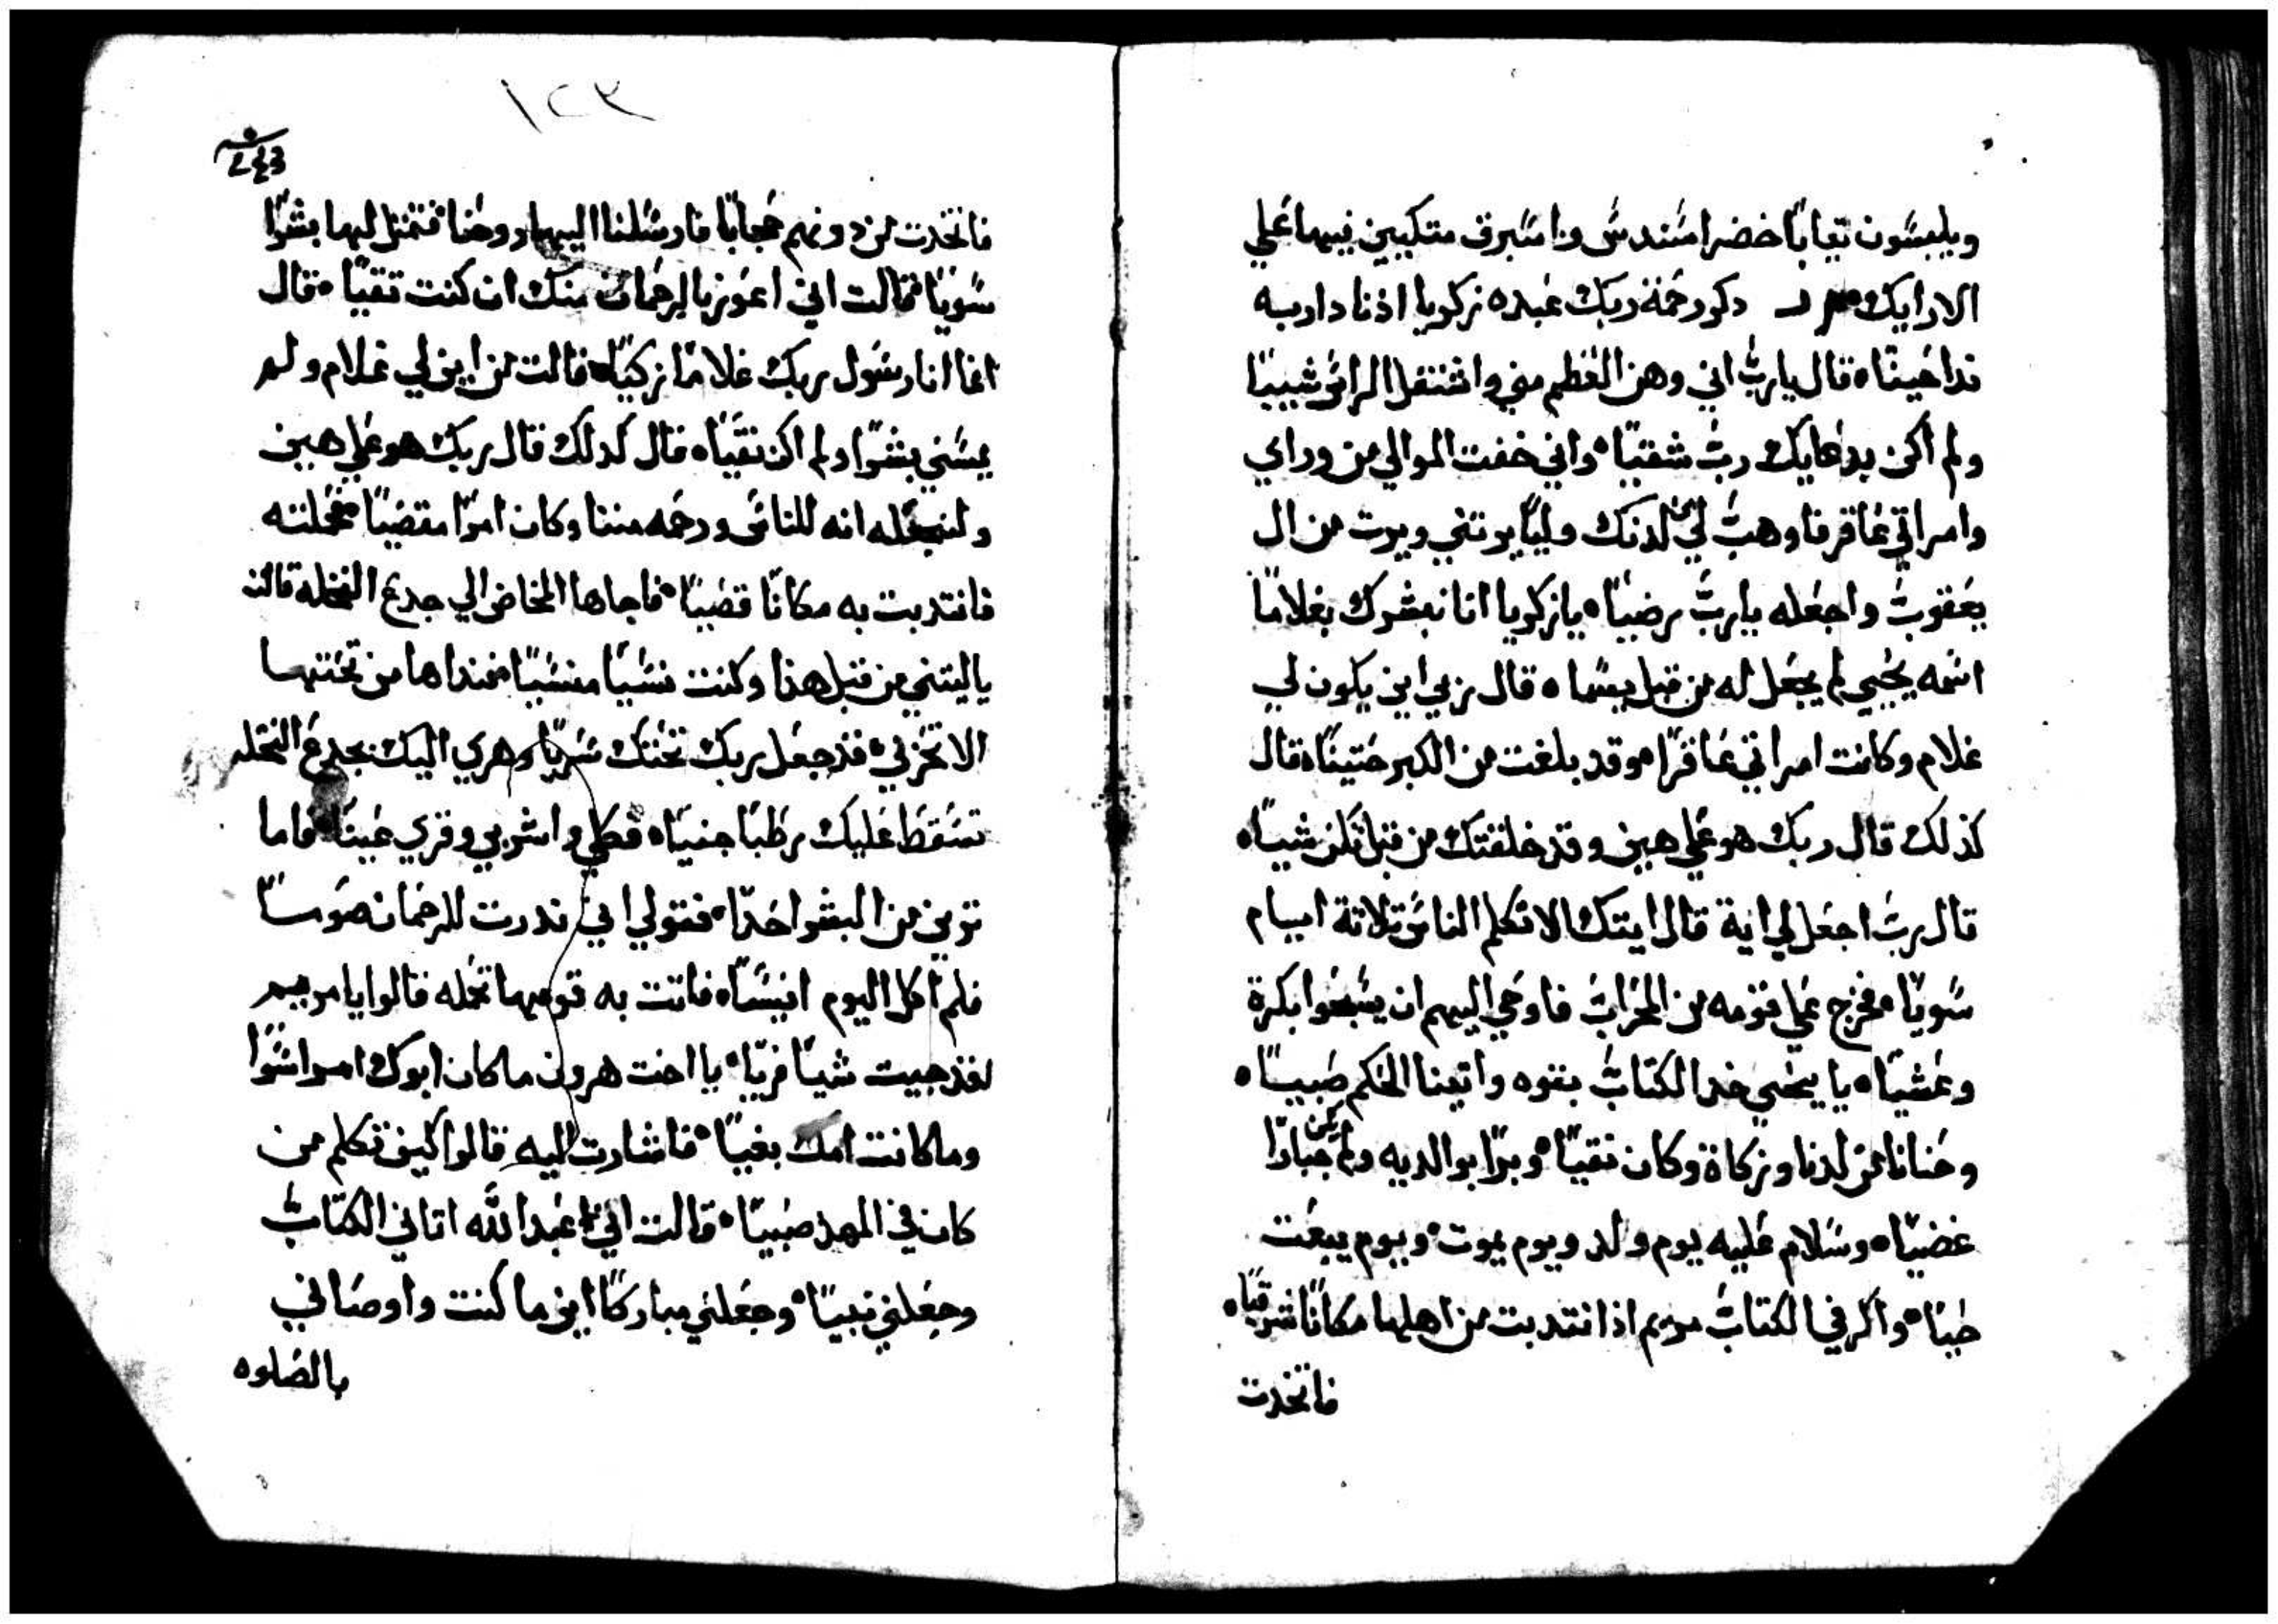 ويلبسون تيابًا خضرا سندس واسبرق متكيين فيها علي
الارايك دكر رحمة ربك عبده زكريا اذنا داربه
ندا خينًا ه قال يا رب اني وهن العظم مني واشتعل الراس شيبًا
ولم اكن بدعايك رب شقيًا ه واني خفت الموالي من وراي
وامراتي عاقر فاوهب لي من لدنك وليًا يوتني ويرت من ال
يعقوب واجعله يا رب رضيًا ه يا زكريا انا نبشرك بغلامًا
اسمه يحيي لم يجعل له من قبل سما ه قال ربي اين يكون لي
غلام وكانت امراتي عاقرًا ه وقد بلغت من الكبر عتيًا ه قال
كذلك قال ربك هو علي هين وقد خلقتك من قبل تكن شيا ه
قال رب اجعل لي اية قال ايتك الا تكلم الناس تلاتة ايام
سويًا ه فخرج علي قومه من المحراب فاوحي اليهم ان يسبحوا بكرة
وعشيًا ه يا يحيي خد الكتاب بقوه واتينا الحكم صبيا ه
وحنانا من لدنا وزكاة وكان تقيًا ه وبرًا بوالديه ولم يكن جبارًا
عصيًا ه وسلام عليه يوم ولد ويوم يموت ه ويوم يبعت
حيًا ه واكر في الكتاب مريم اذ انتدبت من اهلها مكانًا شرقيًا ه
فاتخدت
١٢٣
فاتخدت من دونهم حجابًا فارسلنا اليها روحنا فتمتل لها بشرًا
سويًا فقالت اني اعوز بالرحمان منك ان كنت تقيًا ه قال
انما انا رسول ربك غلامًا زكيًا ه قالت من اين لي غلام ولم
يمسني بشرًا ولم اكن بقيًا ه قال كدلك قال ربك هو علي هين
ولنجعله انه للناس ورحمه مننا وكان امرًا مقضيًا ه فحملته
فانتدبت به مكانًا قصيًا ه فاجاها المخاض الي جدع النخله قالت
يا ليتني من قبل هذا وكنت نسيًا منسيًا فنداها من تحتها
الا تحزني ه قد جعل ربك تحتك سريًا وهري اليك بجدع النخله
تسقط عليك رطبًا جنيًا ه فكلي واشربي وقري عينًا ه فاما
تري من البشر احدًا ه فقولي اني ندرت للرحمان صومًا
فلم اكل اليوم انيسًا ه فاتت به قومها تحمله قالوا يا مريم
لقد جيت شيًا فريًا ه يا اخت هرون ما كان ابوك امرا سوًا
وما كانت امك بغيًا ه فاشارت اليه قالوا كيف تكلم من
كان في المهد صبيًا ه قالت اني عبد الله اتاني الكتاب
وجعلني نبيًا ه وجعلني مباركًا اين ما كنت واوصاني
بالصلوه